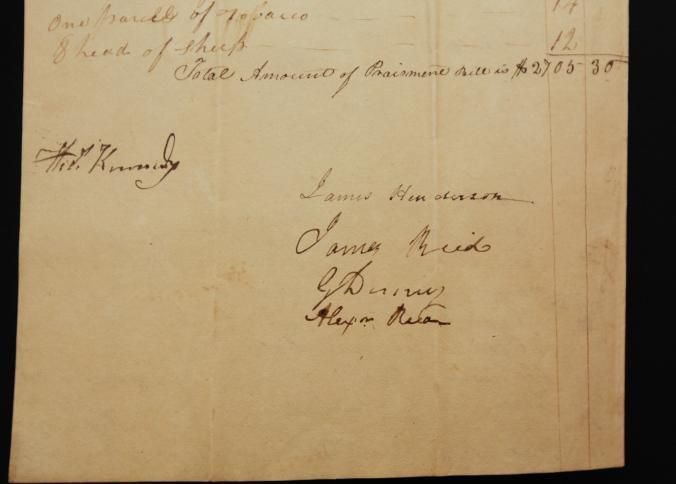 One parcell of Tobacco — — — 14
8 head of Sheep — — — 12
Total Amount of Praisment Bill is $2705 30
Kennedy
James Henderson
James Reid
G Denny
Alexr.